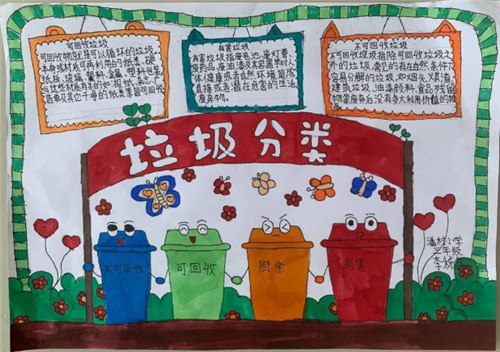 可回收垃圾
可回收物就是可以循环的垃圾
本身或材质可再利用的纸类、硬
纸板、玻璃、塑料、金属、塑料包装
与这些材质有关的如:报纸、杂志、广
告单及其它干净的纸类等皆可回收
有害垃圾
有害垃圾指废电池、废灯管、
废药品、废油漆及其容器等对人
体健康或者自然环境造成
直接或者潜在危害的生活
废弃物。
不可回收垃圾
不可回收垃圾指除可回收垃圾之
外的垃圾,常见的有在自然条件下
容易分解的垃圾,如烟头、煤渣、
建筑垃圾、油漆颜料、食品残留
物等废弃后没有多大利用价值的物
垃圾分类
不可回收
可回收
厨余
有害
小学
年级
李